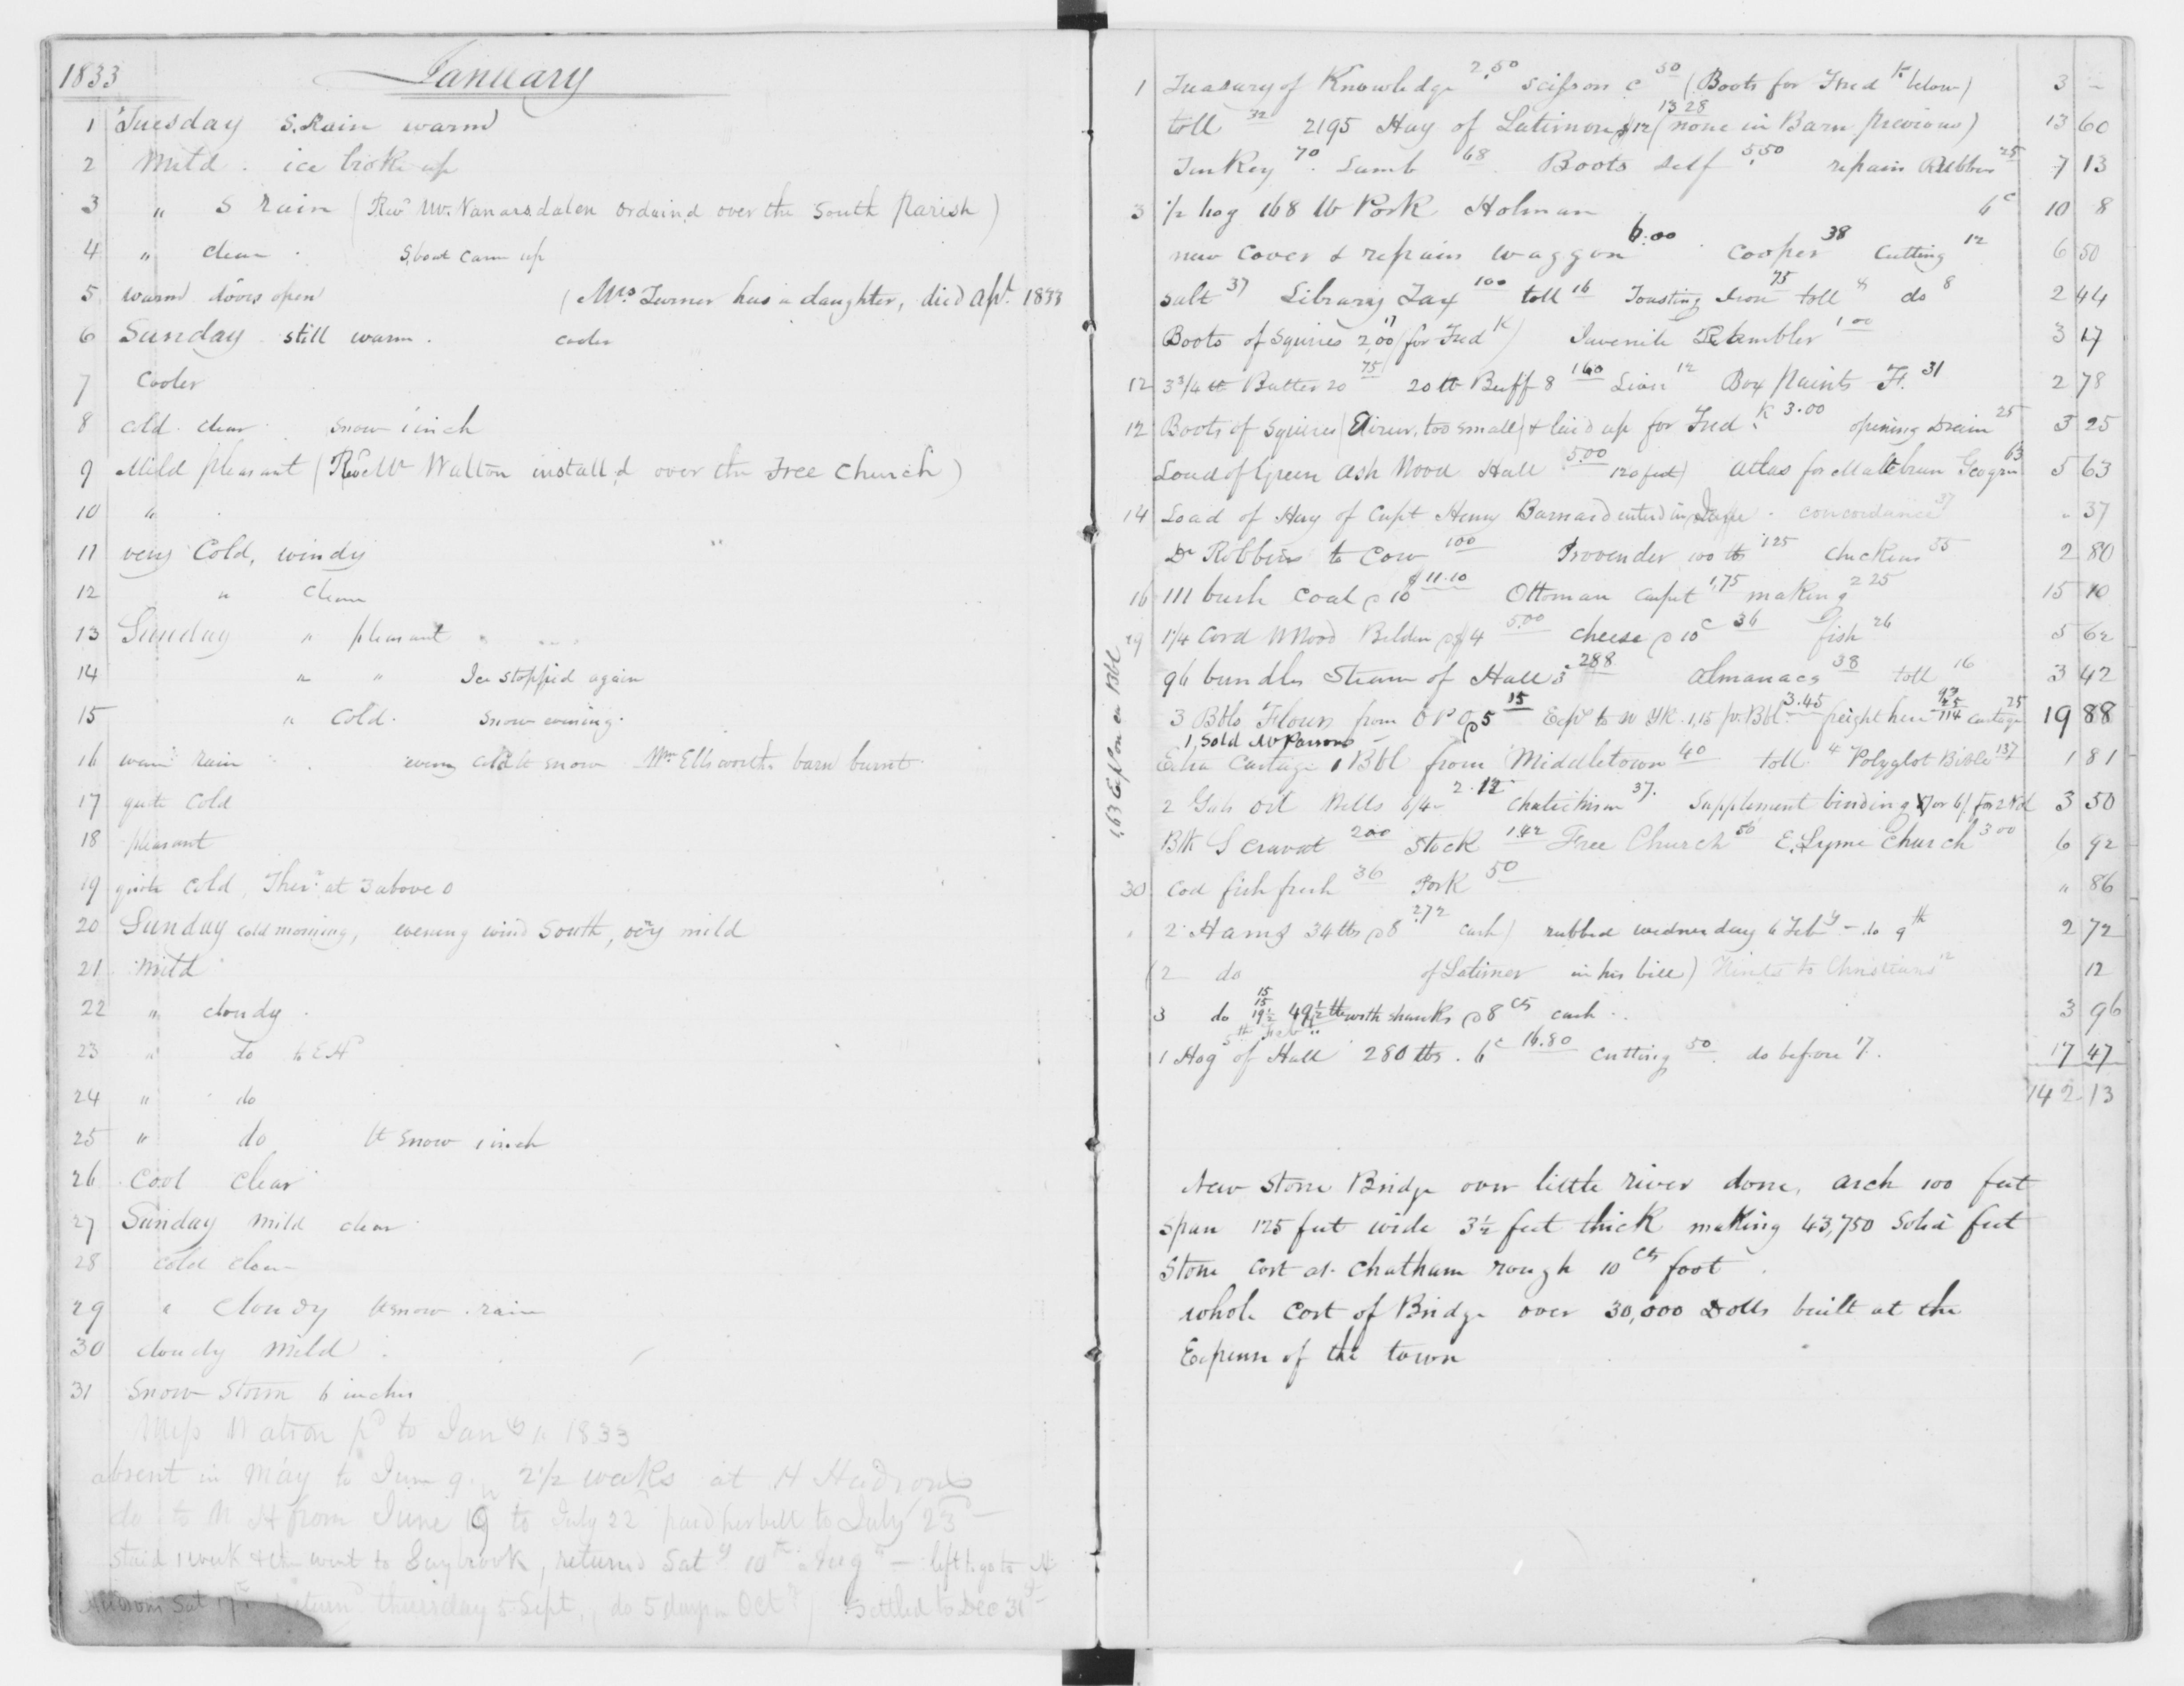 1833 January
1 Tuesday S. Rain warm
2 Mild . ice broke up
3 " S rain (Revd Mr. Vanarsdalen ordaind over the South Parish)
4 " clear . S.boat came up
5 warm doors open (Mrs Turner has a daughter, died Apl. 1833
6 Sunday still warm . cooler
7 Cooler
8 cold . clear . snow 1 inch
9 Mild pleasant (Revd Mr Walton install,d over the Free Church)
10 "
11 very Cold, windy
12 " Clear
13 Sunday " pleasant
14 " " Ice stopped again
15 " Cold . Snow evening .
16 warm rain . eveng cold lt snow Mr Ellsworths barn burnt
17 quite cold
18 pleasant
19 quite cold, Ther. at 3 above 0
20 Sunday cold morning, evening wind South, very mild
21 Mild
22 " cloudy .
23 " do to E H
24 " do
25 " do lt snow 1 inch
26 Cool Clear
27 Sunday mild clear
28 cold clear
29 " Cloudy lt snow . rain
30 cloudy mild .
31 Snow Storm 6 inches
Miss Watson pd to Jany 1. 1833
absent in May to June 9. 2 1/2 weeks at H Hudsons
do to N H from June 19 to July 22 paid her bill to July 23d
staid 1 week & then went to Saybrook, returnd Saty 10th Augt — left to go to
Hudsons Sat 17th returnd thursday 5 Sept., do 5 days in Octr, Settled to Dec 31st
1 Treasury of Knowledge 2,50 scissors c 50 (Boots for Fredk below) 3 –
toll 32 2195 Hay of Latimer $12 13 28 (none in Barn previous) 13 60
Turkey 70 . Lamb 68 . Boots self 5,50 repair Rubbers 25 7 13
3 1/2 hog 168 lb Pork Holman 6c 10 8
new Cover & repairs waggon 6.00 . Cooper 38 Cutting 12 6 50
Salt 37 Library Tax 100 toll 16 Toasting Iron 75 toll 8 do 8 2 44
Boots of Squires 2,00 17 (for Fredk) Juvenile Rambler 1 00 3 17
12 3 3/4 lb Butter 20 75 20 lb Beef 8 160 Liver 12 Box Paints F. 31 2 78
12 Boots of Squires ( too small) & laid up for Fredk 3.00 opening Drain 25 3 25
Load of Green Ash Wood Hall 5.00 120 feet) Atlas for Maltebrun Geogra 63 5 63
14 Load of Hay of Capt Henry Barnard enterd in . concordance 37 " 37
Dr Robbins to Cow 100 Provender 100 lb 125 Chickens 55 2 80
16 111 bush Coal @ 10 $11.10 Ottoman carpet 1,75 making 2 25 15 10
19 1 1/4 Cord Wood Belden @ $4 5.00 Cheese @ 10c 36 fish 26 5 62
96 bundles Straw of Hall 3 288 Almanacs 38 toll 16 3 42
3 Bbls Flour from O P @ 5 15 Expr to N Yk. 1,15 pr. Bbl. 3.45 freight here cartage 25 19 88
1, Sold Mr Parsons
Extra Cartage 1 Bbl from Middletown 40 toll 4 Polyglot Bible 137 1 81
2 Gals oil Mills 6/4 2.12 Chatechism 37. Supplement binding 3 50
Blk S Cravat 200 Stock 142 Free Church 50 E. Lyme Church 3 00 6 92
30 Cod fish fresh 36 Pork 50 " 86
2 Hams 34 lbs @ 8 2,72 cash) rubbed wednesday 6 Feby – do 9th 2 72
(2 do of Latimer in his bill) Hints to Christians 12 12
3 do 15 15 19 1/2 49 1/2 lb with shanks @ 8 cts cash . 3 96
5th Feb
1 Hog of Hall 280 lbs . 6c 16.80 Cutting 50 . do before 17. 17 47
142 13
1,63 Exps on ea Bbl
New Stone Bridge over little river done, arch 100 feet
Span 125 feet wide 3 1/2 feet thick making 43,750 Solid feet
Stone Cost at Chatham rough 10 cts foot .
whole Cost of Bridge over 30,000 Dolls built at the
Expense of the town